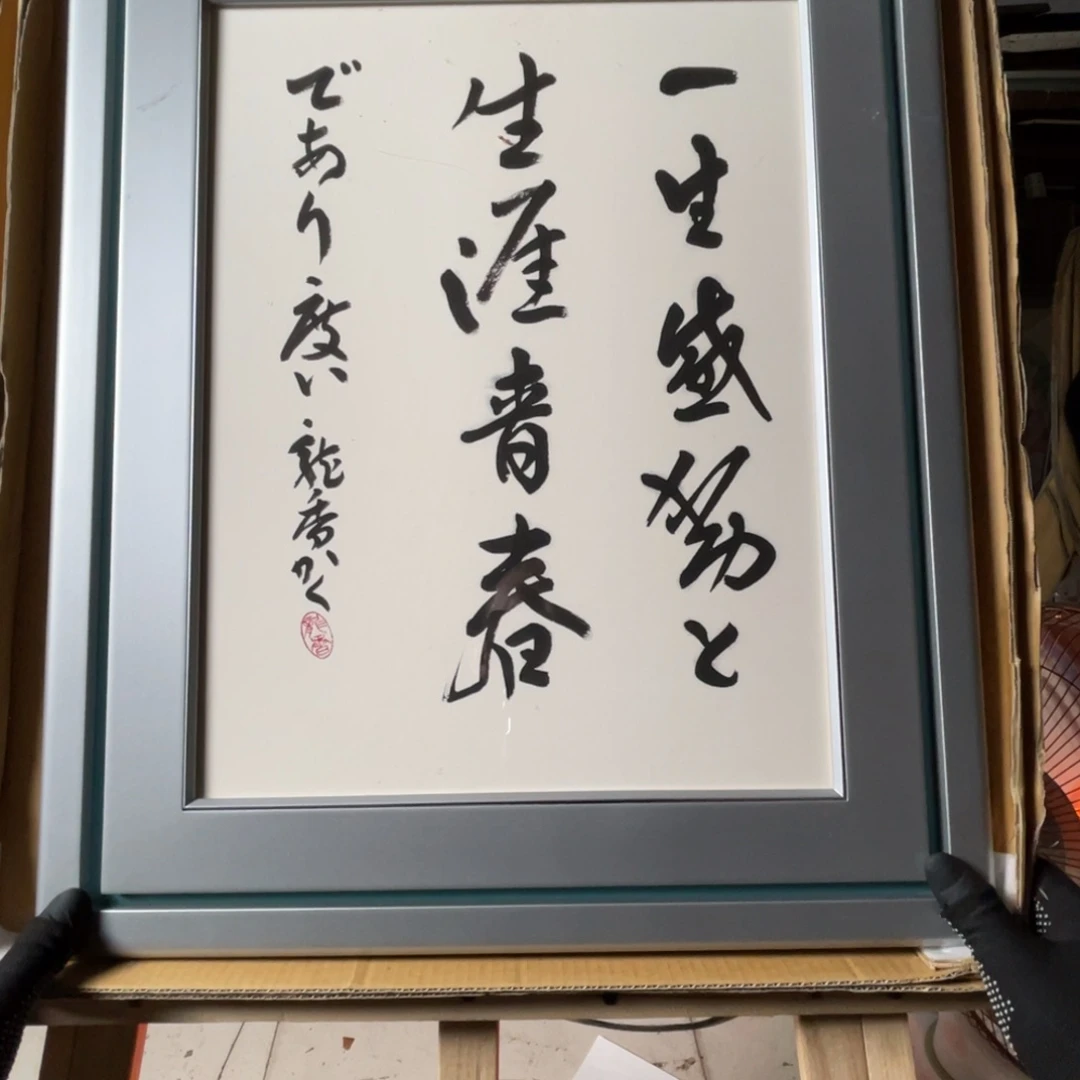 一生感動と
生涯青春
であり度い 龍香かく